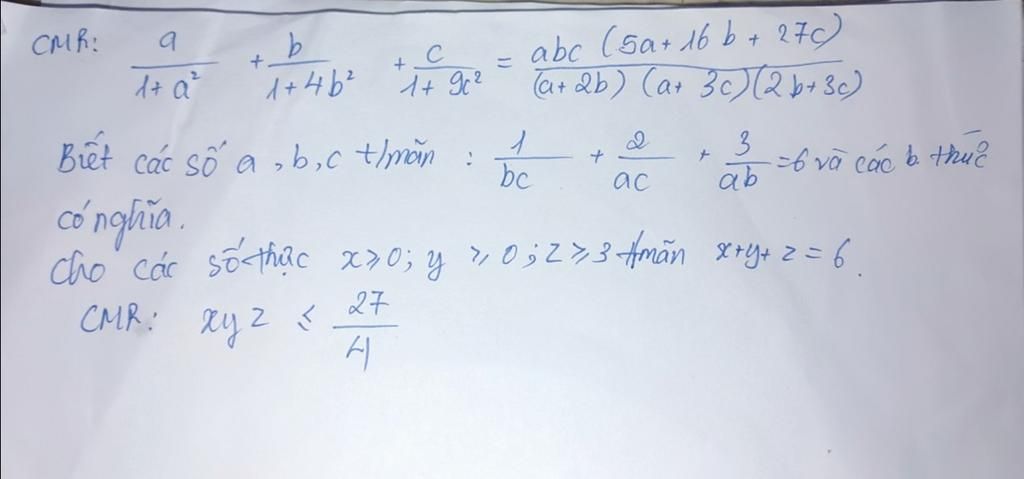 CMR: a/(1+a²) + b/(1+4b²) + c/(1+9c²) = abc (5a+16b+27c)/((a+2b)(a+3c)(2b+3c))
Biết các số a, b, c t/mãn : 1/bc + 2/ac + 3/ab = 6 và các b thức
có nghĩa.
Cho các số thực x ⩾ 0; y ⩾ 0; z ⩾ 3 t/mãn x+y+z = 6.
CMR: xyz ≤ 27/4